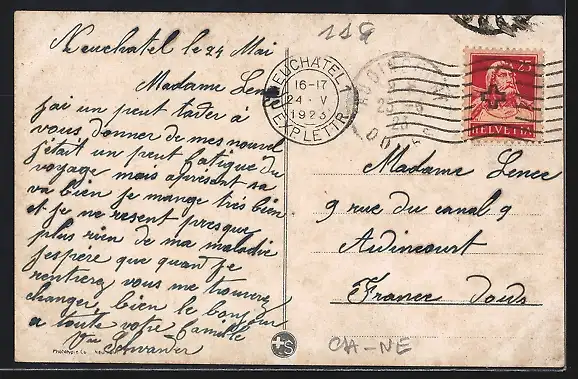 119
Neuchatel le 24 Mai
Madame Lenee
j'ai un peut tarder à
vous donner de mes nouvel
j'était un peut fatigue du
voyage mais aprésent sa
va bien je mange très bien
et je ne resent presque
plus rien de ma maladie
j'espere que quand je
rentrerez vous me trouverez
changer, bien le bonjour
a toute votre famille
Schwander
Phototypie Co. Neuchatel
S
NEUCHÂTEL 1
16-17
24. V
1923
EXP. LETTR.
25
23
25
HELVETIA
Madame Lenee
9 rue du canal 9
Audincourt
France Doubs
CH-NE